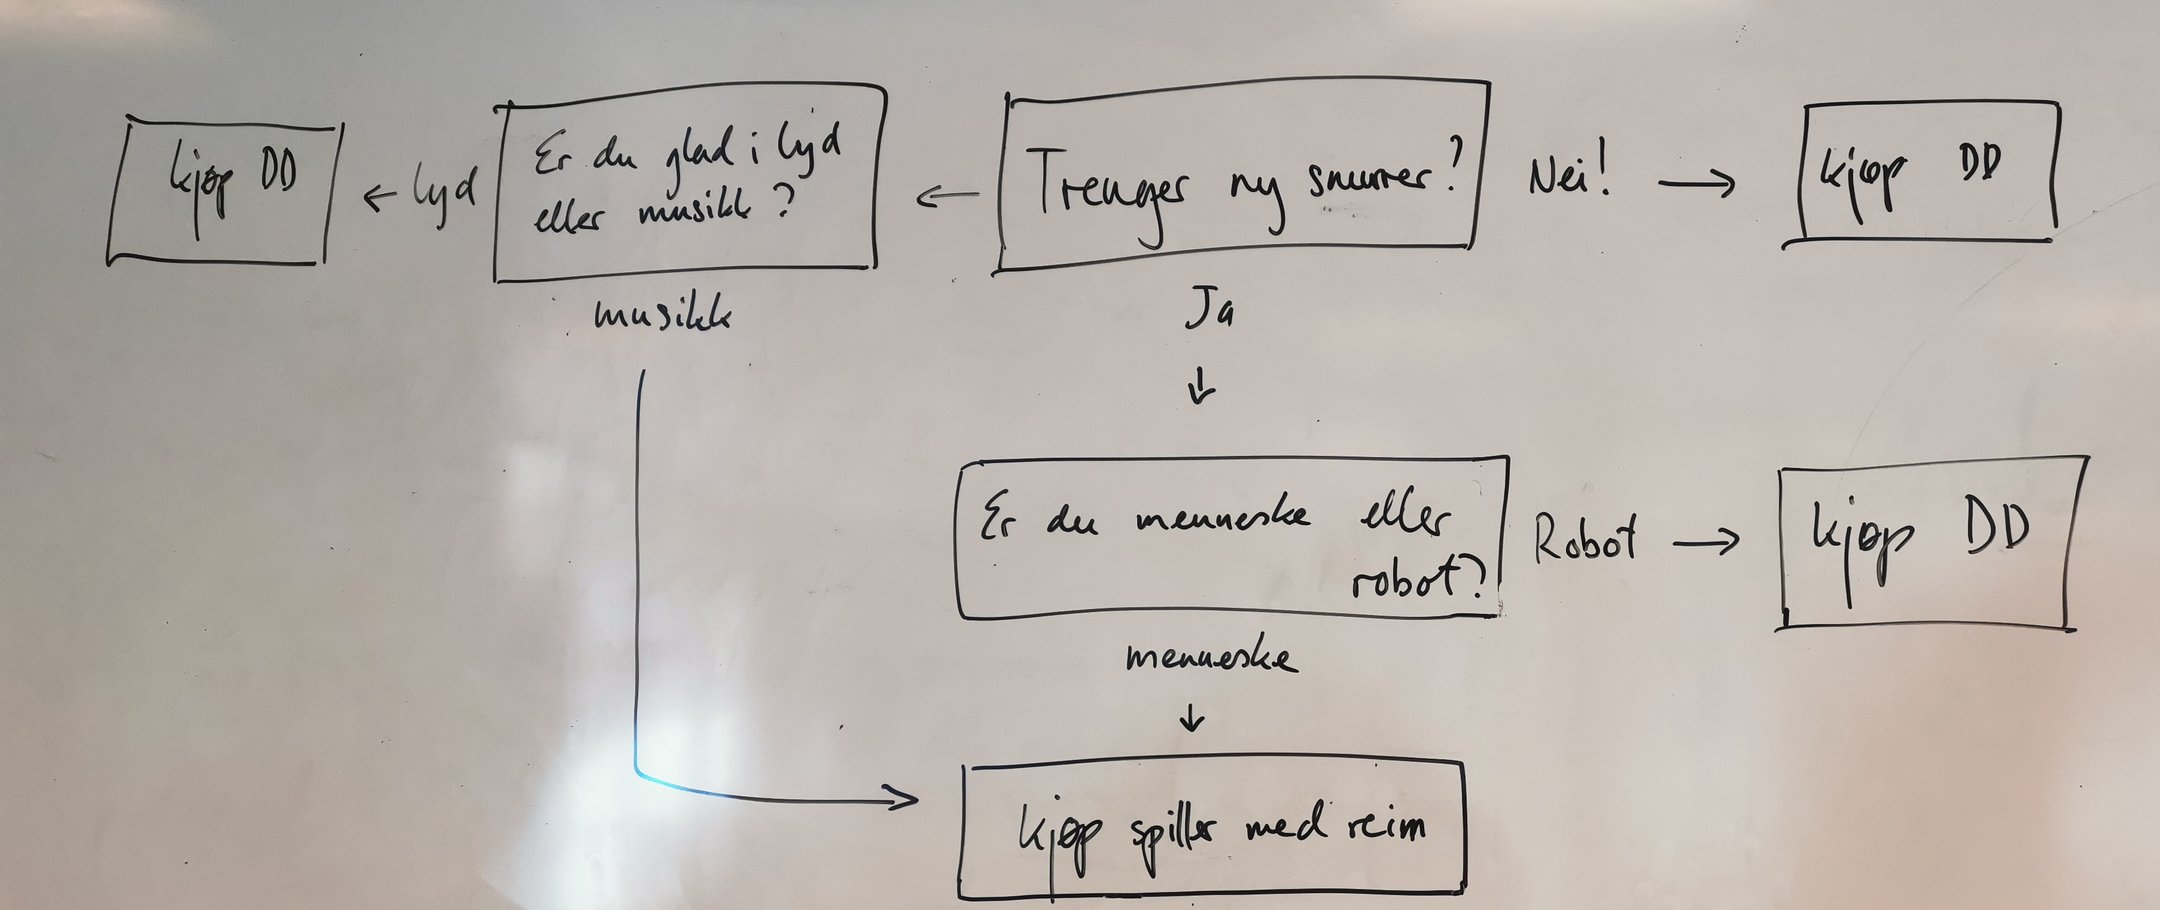 kjøp DD
← lyd
Er du glad i lyd
eller musikk?
←
Trenger ny snurrer?
Nei! →
kjøp DD
musikk
Ja
↓
Er du menneske eller
robot?
Robot →
kjøp DD
menneske
↓
kjøp spiller med reim